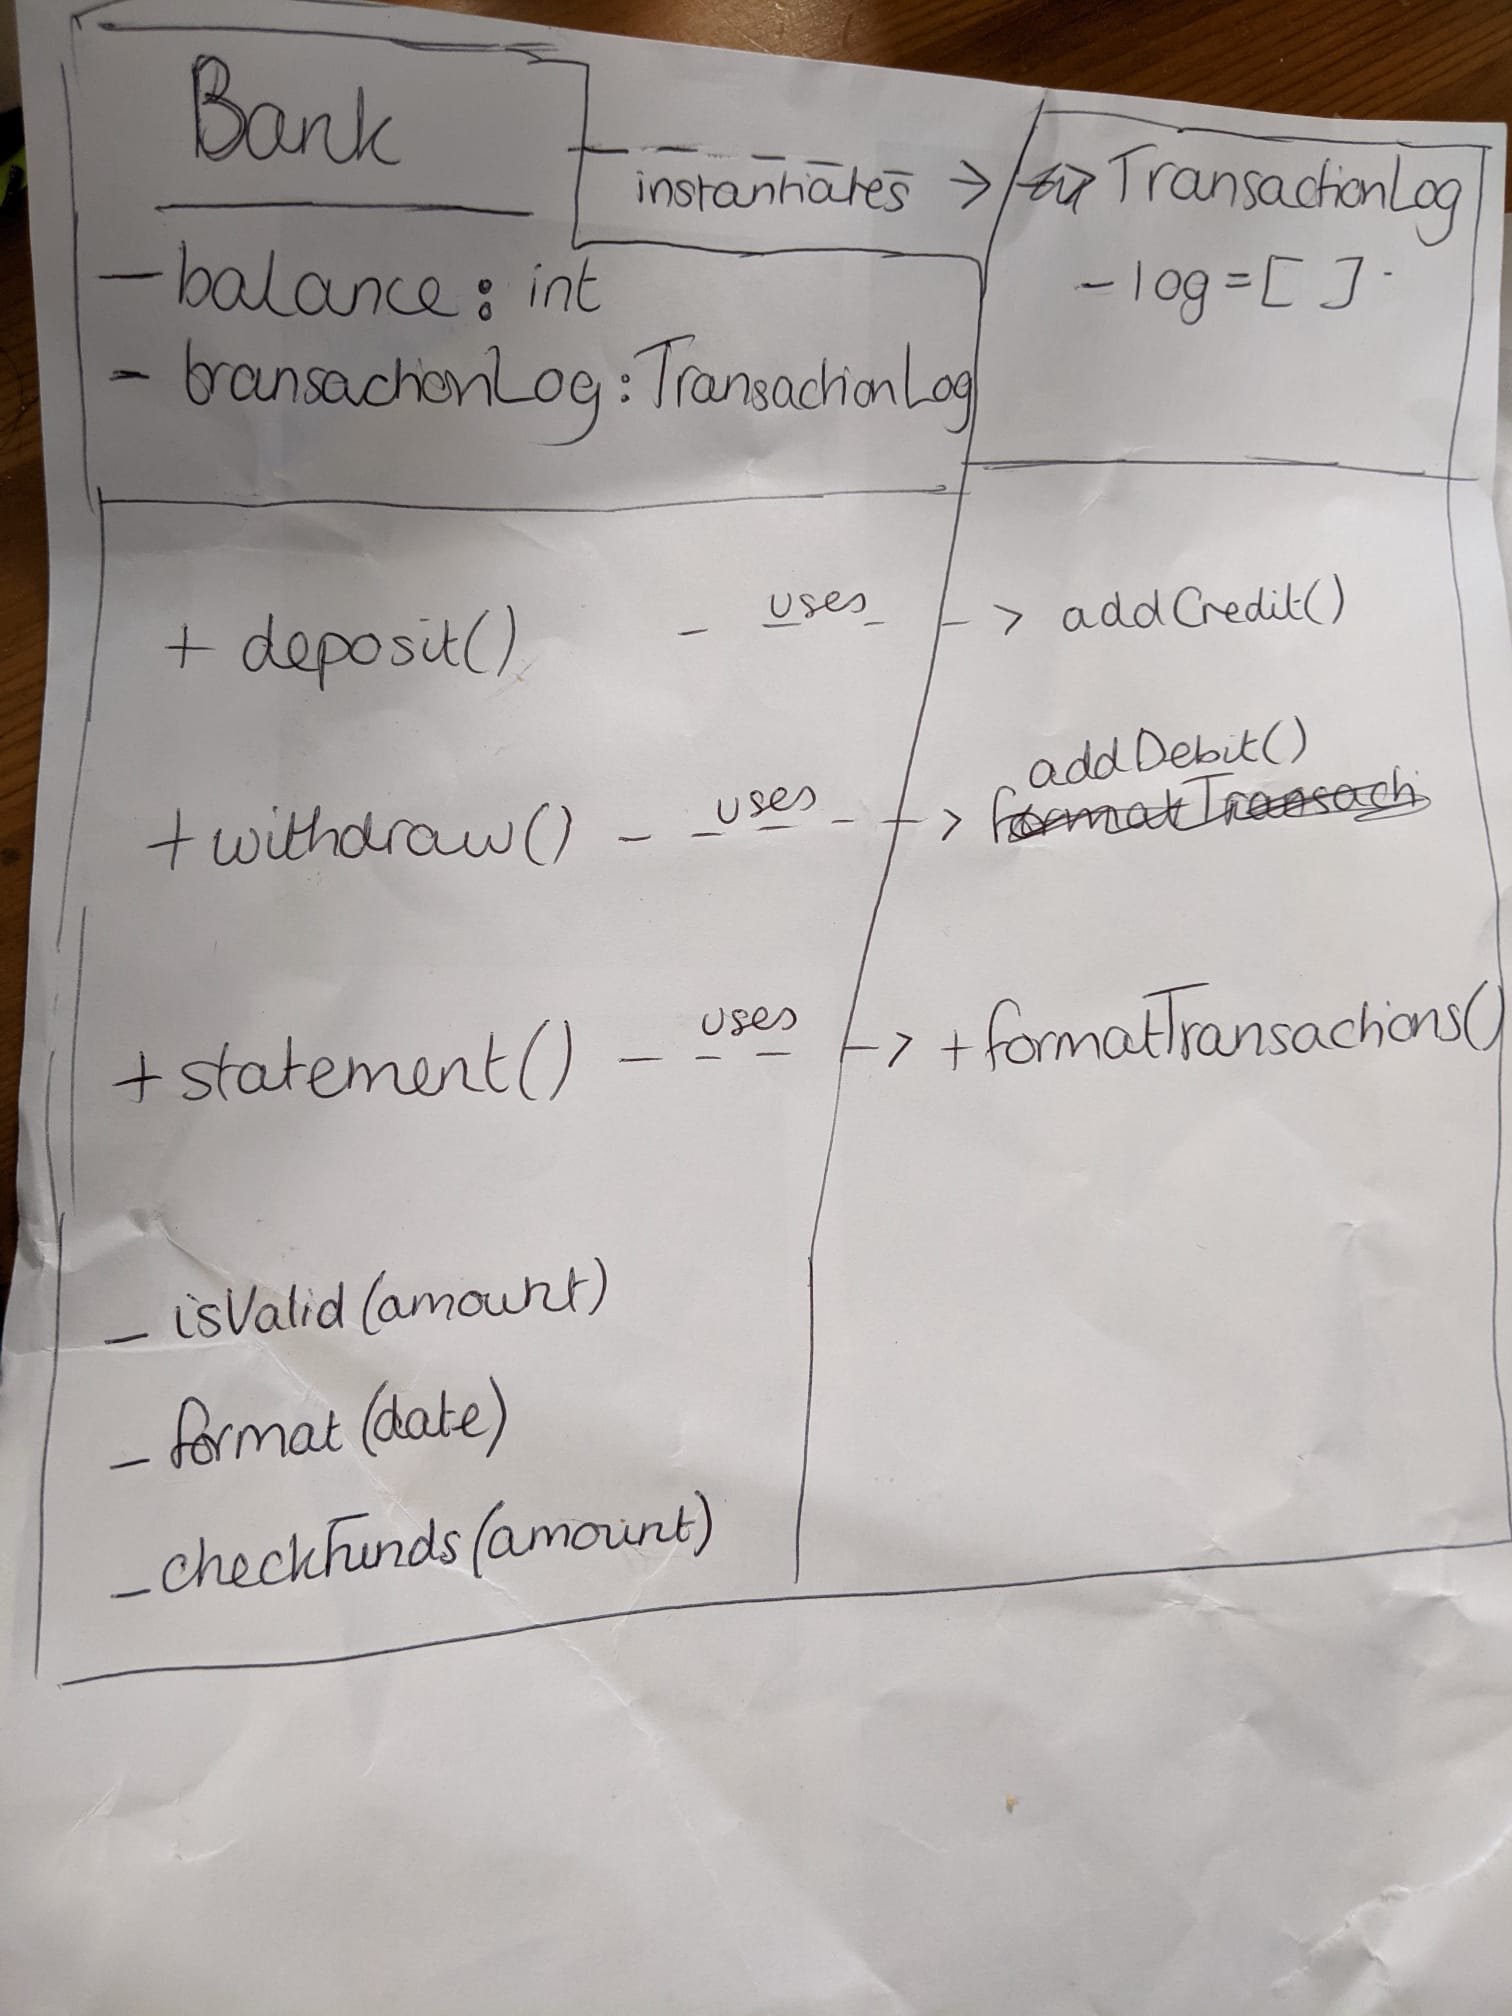 Bank
instantiates -> TransactionLog
- balance: int
- log = [ ]
- transactionLog: TransactionLog
+ deposit() - uses - -> addCredit()
addDebit()
+ withdraw() - - uses - - -> formatTransach
+ statement() - - uses - -> + formatTransactions()
- isValid (amount)
- format (date)
- checkFunds (amount)